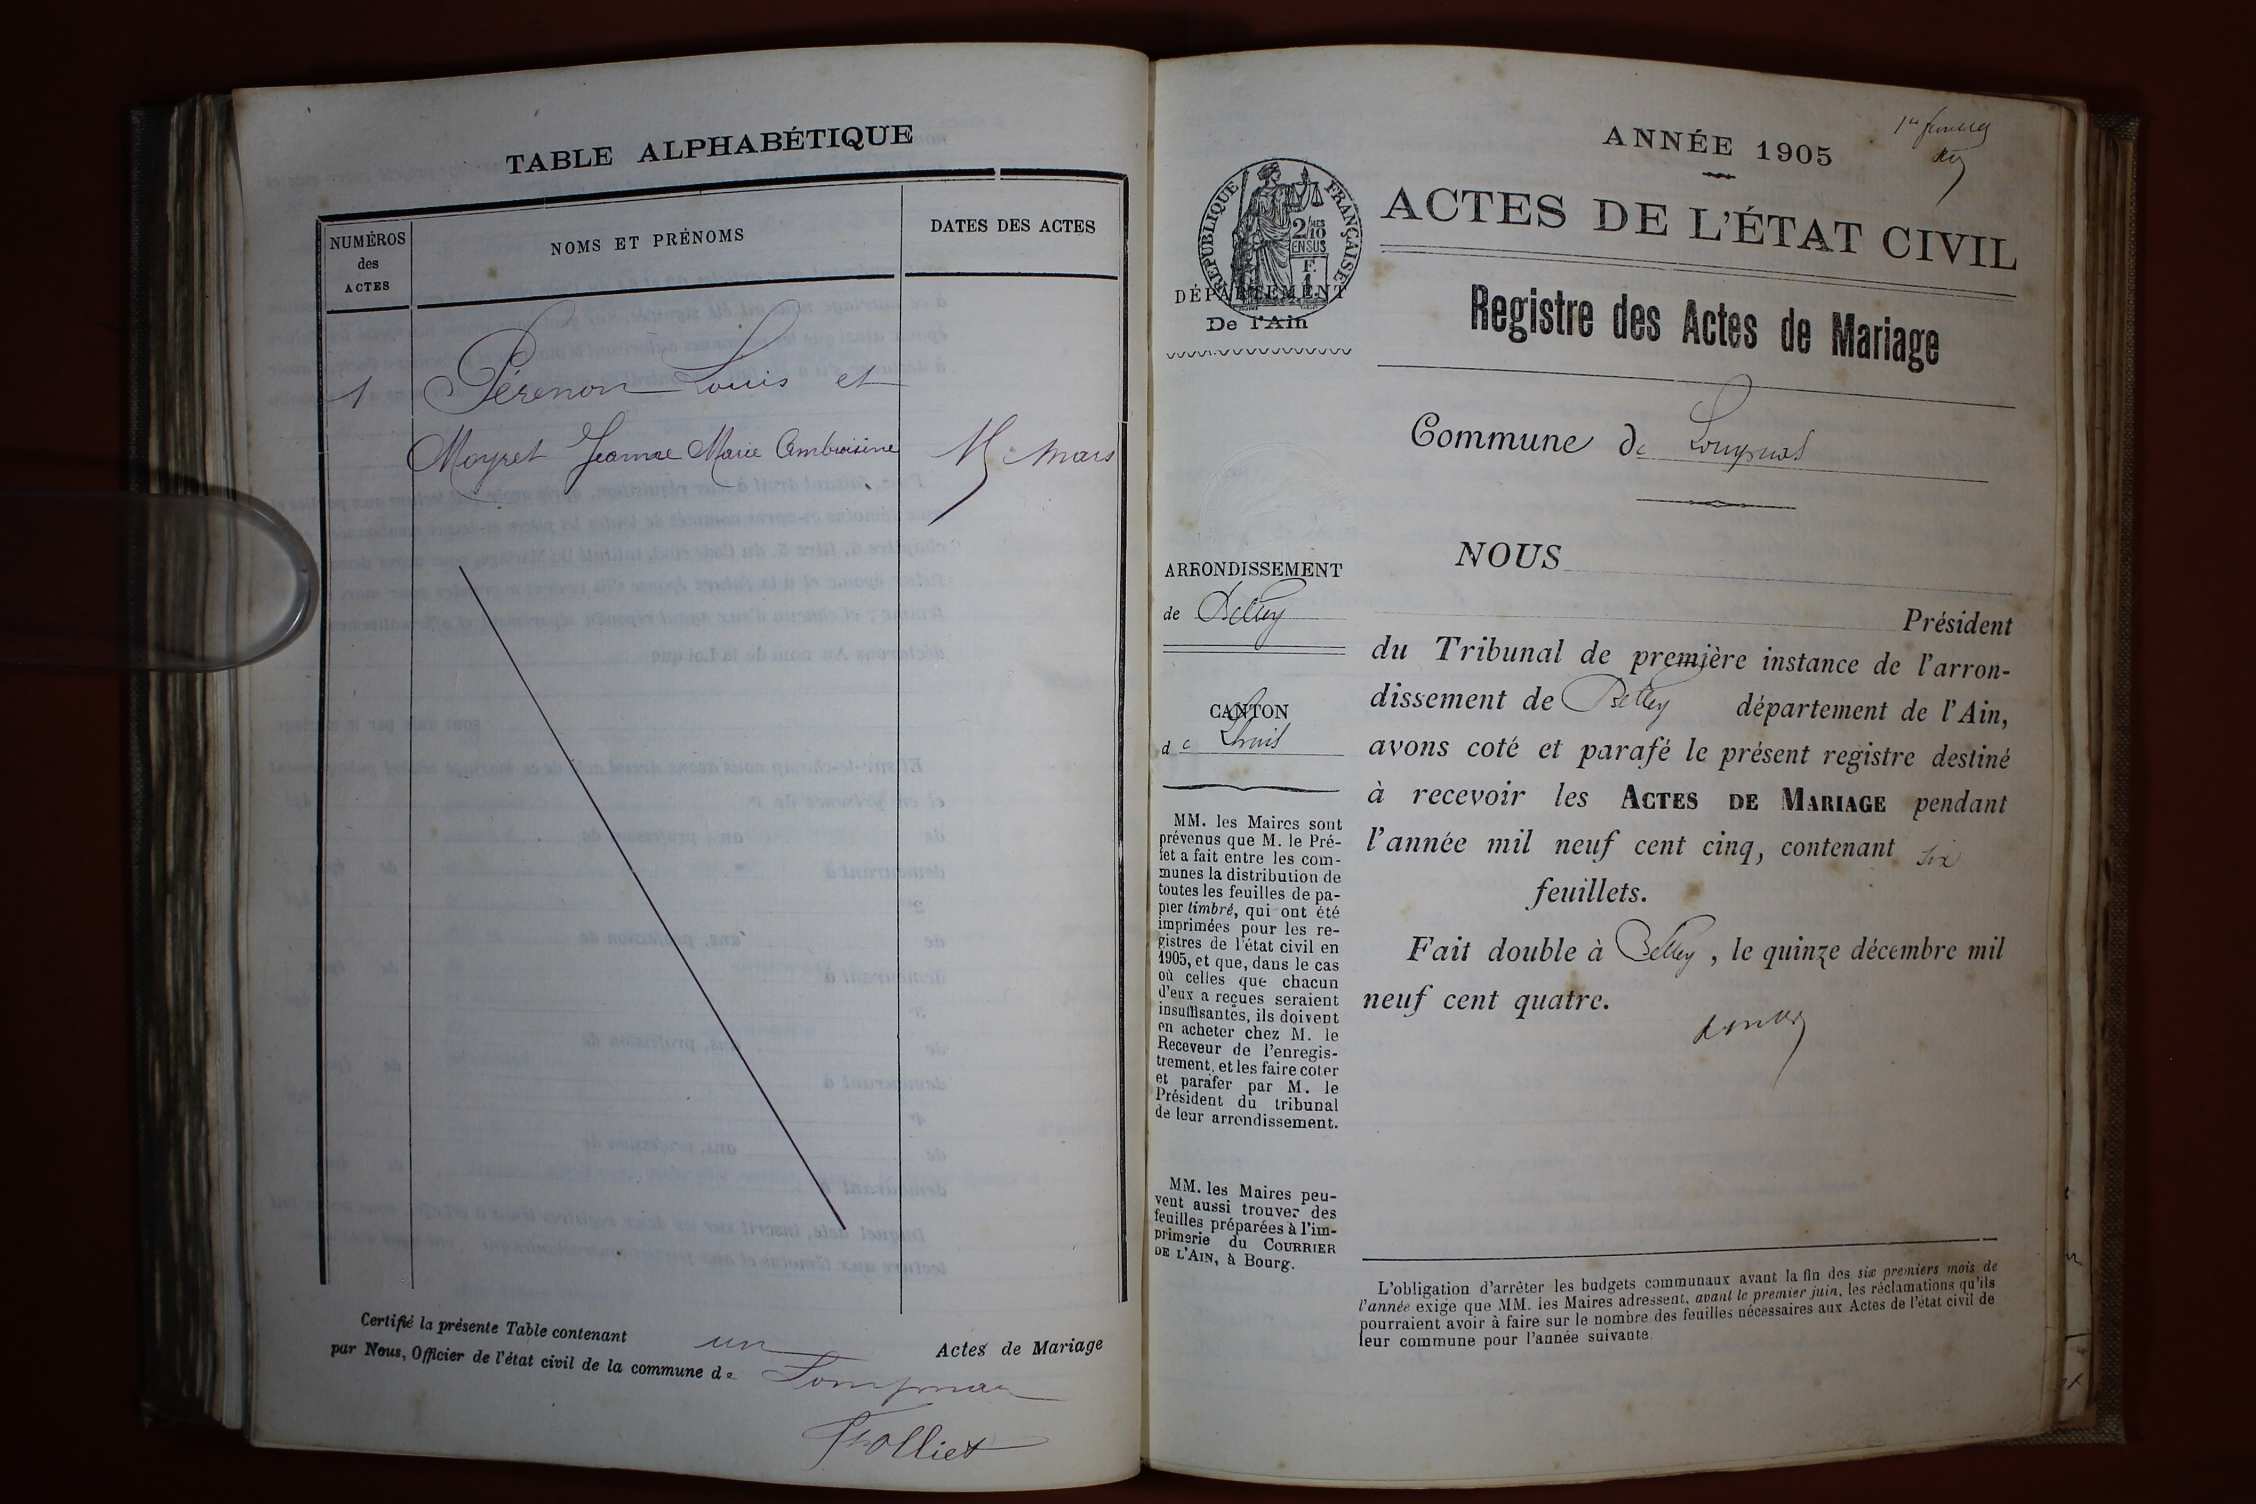 TABLE ALPHABÉTIQUE
NUMÉROS
des
ACTES
NOMS ET PRÉNOMS
DATES DES ACTES
1 Pérenon Louis et
Moyret Jeanne Marie Ambroisine
mars
Certifié la présente Table contenant un Actes de Mariage
par Nous, Officier de l'état civil de la commune de Lompnas
ANNÉE 1905
ACTES DE L'ÉTAT CIVIL
RÉPUBLIQUE FRANÇAISE
2/10
EN SUS
F.
1
DÉPARTEMENT
De l'Ain
Registre des Actes de Mariage
Commune de Lompnas
NOUS
Président
du Tribunal de première instance de l'arron-
dissement de Belley département de l'Ain,
avons coté et parafé le présent registre destiné
à recevoir les ACTES DE MARIAGE pendant
l'année mil neuf cent cinq, contenant six
feuillets.
Fait double à Belley, le quinze décembre mil
neuf cent quatre.
ARRONDISSEMENT
de Belley
CANTON
de Lhuis
MM. les Maires sont
prévenus que M. le Pré-
fet a fait entre les com-
munes la distribution de
toutes les feuilles de pa-
pier timbré, qui ont été
imprimées pour les re-
gistres de l'état civil en
1905, et que, dans le cas
où celles que chacun
d'eux a reçues seraient
insuffisantes, ils doivent
en acheter chez M. le
Receveur de l'enregis-
trement, et les faire coter
et parafer par M. le
Président du tribunal
de leur arrondissement.
MM. les Maires peu-
vent aussi trouver des
feuilles préparées à l'im-
primerie du COURRIER
DE L'AIN, à Bourg.
L'obligation d'arrêter les budgets communaux avant la fin des six premiers mois de
l'année exige que MM. les Maires adressent, avant le premier juin, les réclamations qu'ils
pourraient avoir à faire sur le nombre des feuilles nécessaires aux Actes de l'état civil de
leur commune pour l'année suivante.